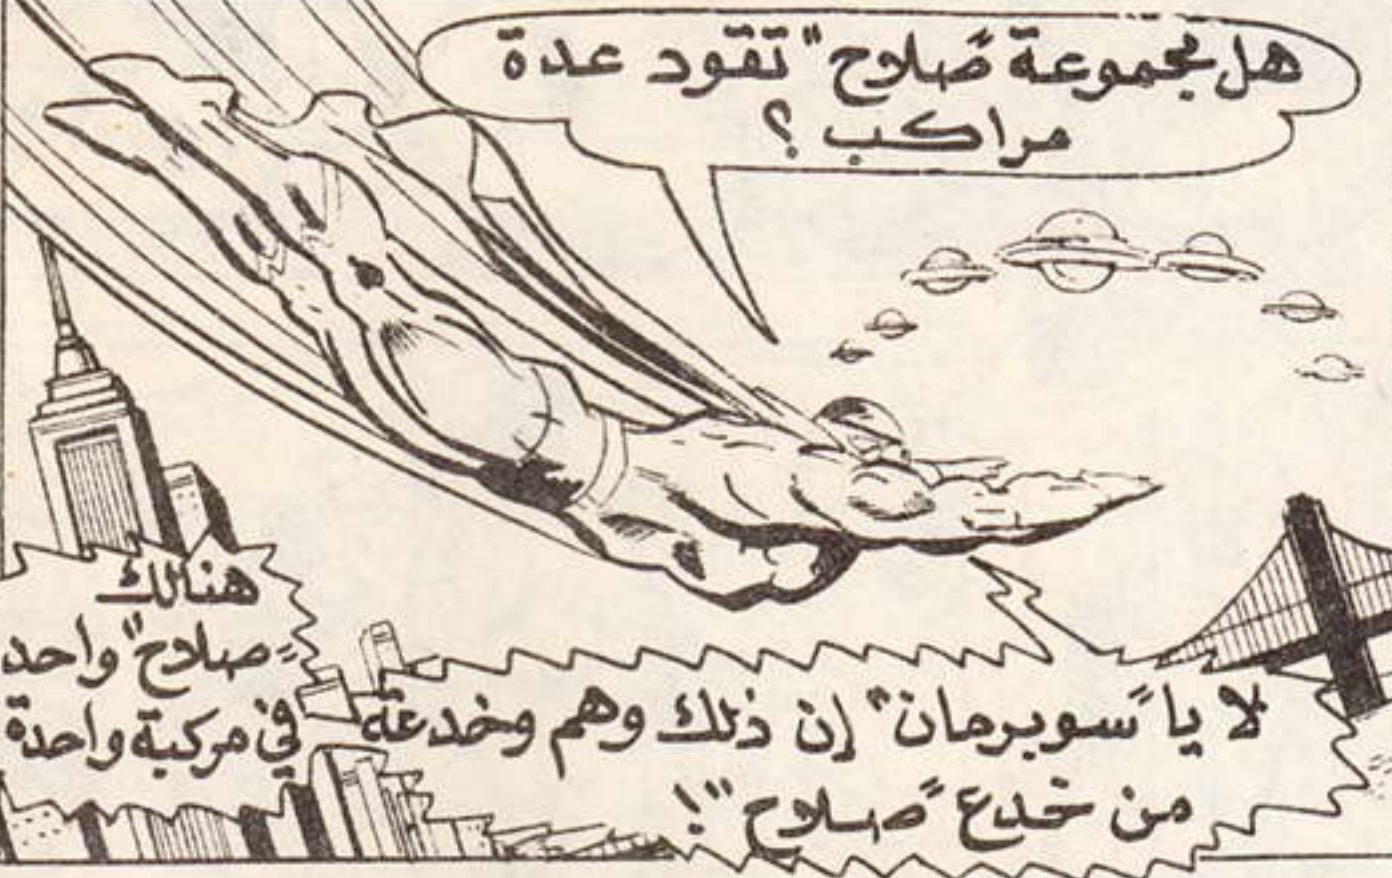 هل مجموعة "صلاح" تقود عدة
مراكب ؟
لا يا "سوبرمان" إن ذلك وهم وخدعة
من خدع "صلاح" !
هنالك
"صلاح" واحد
في مركبة واحدة